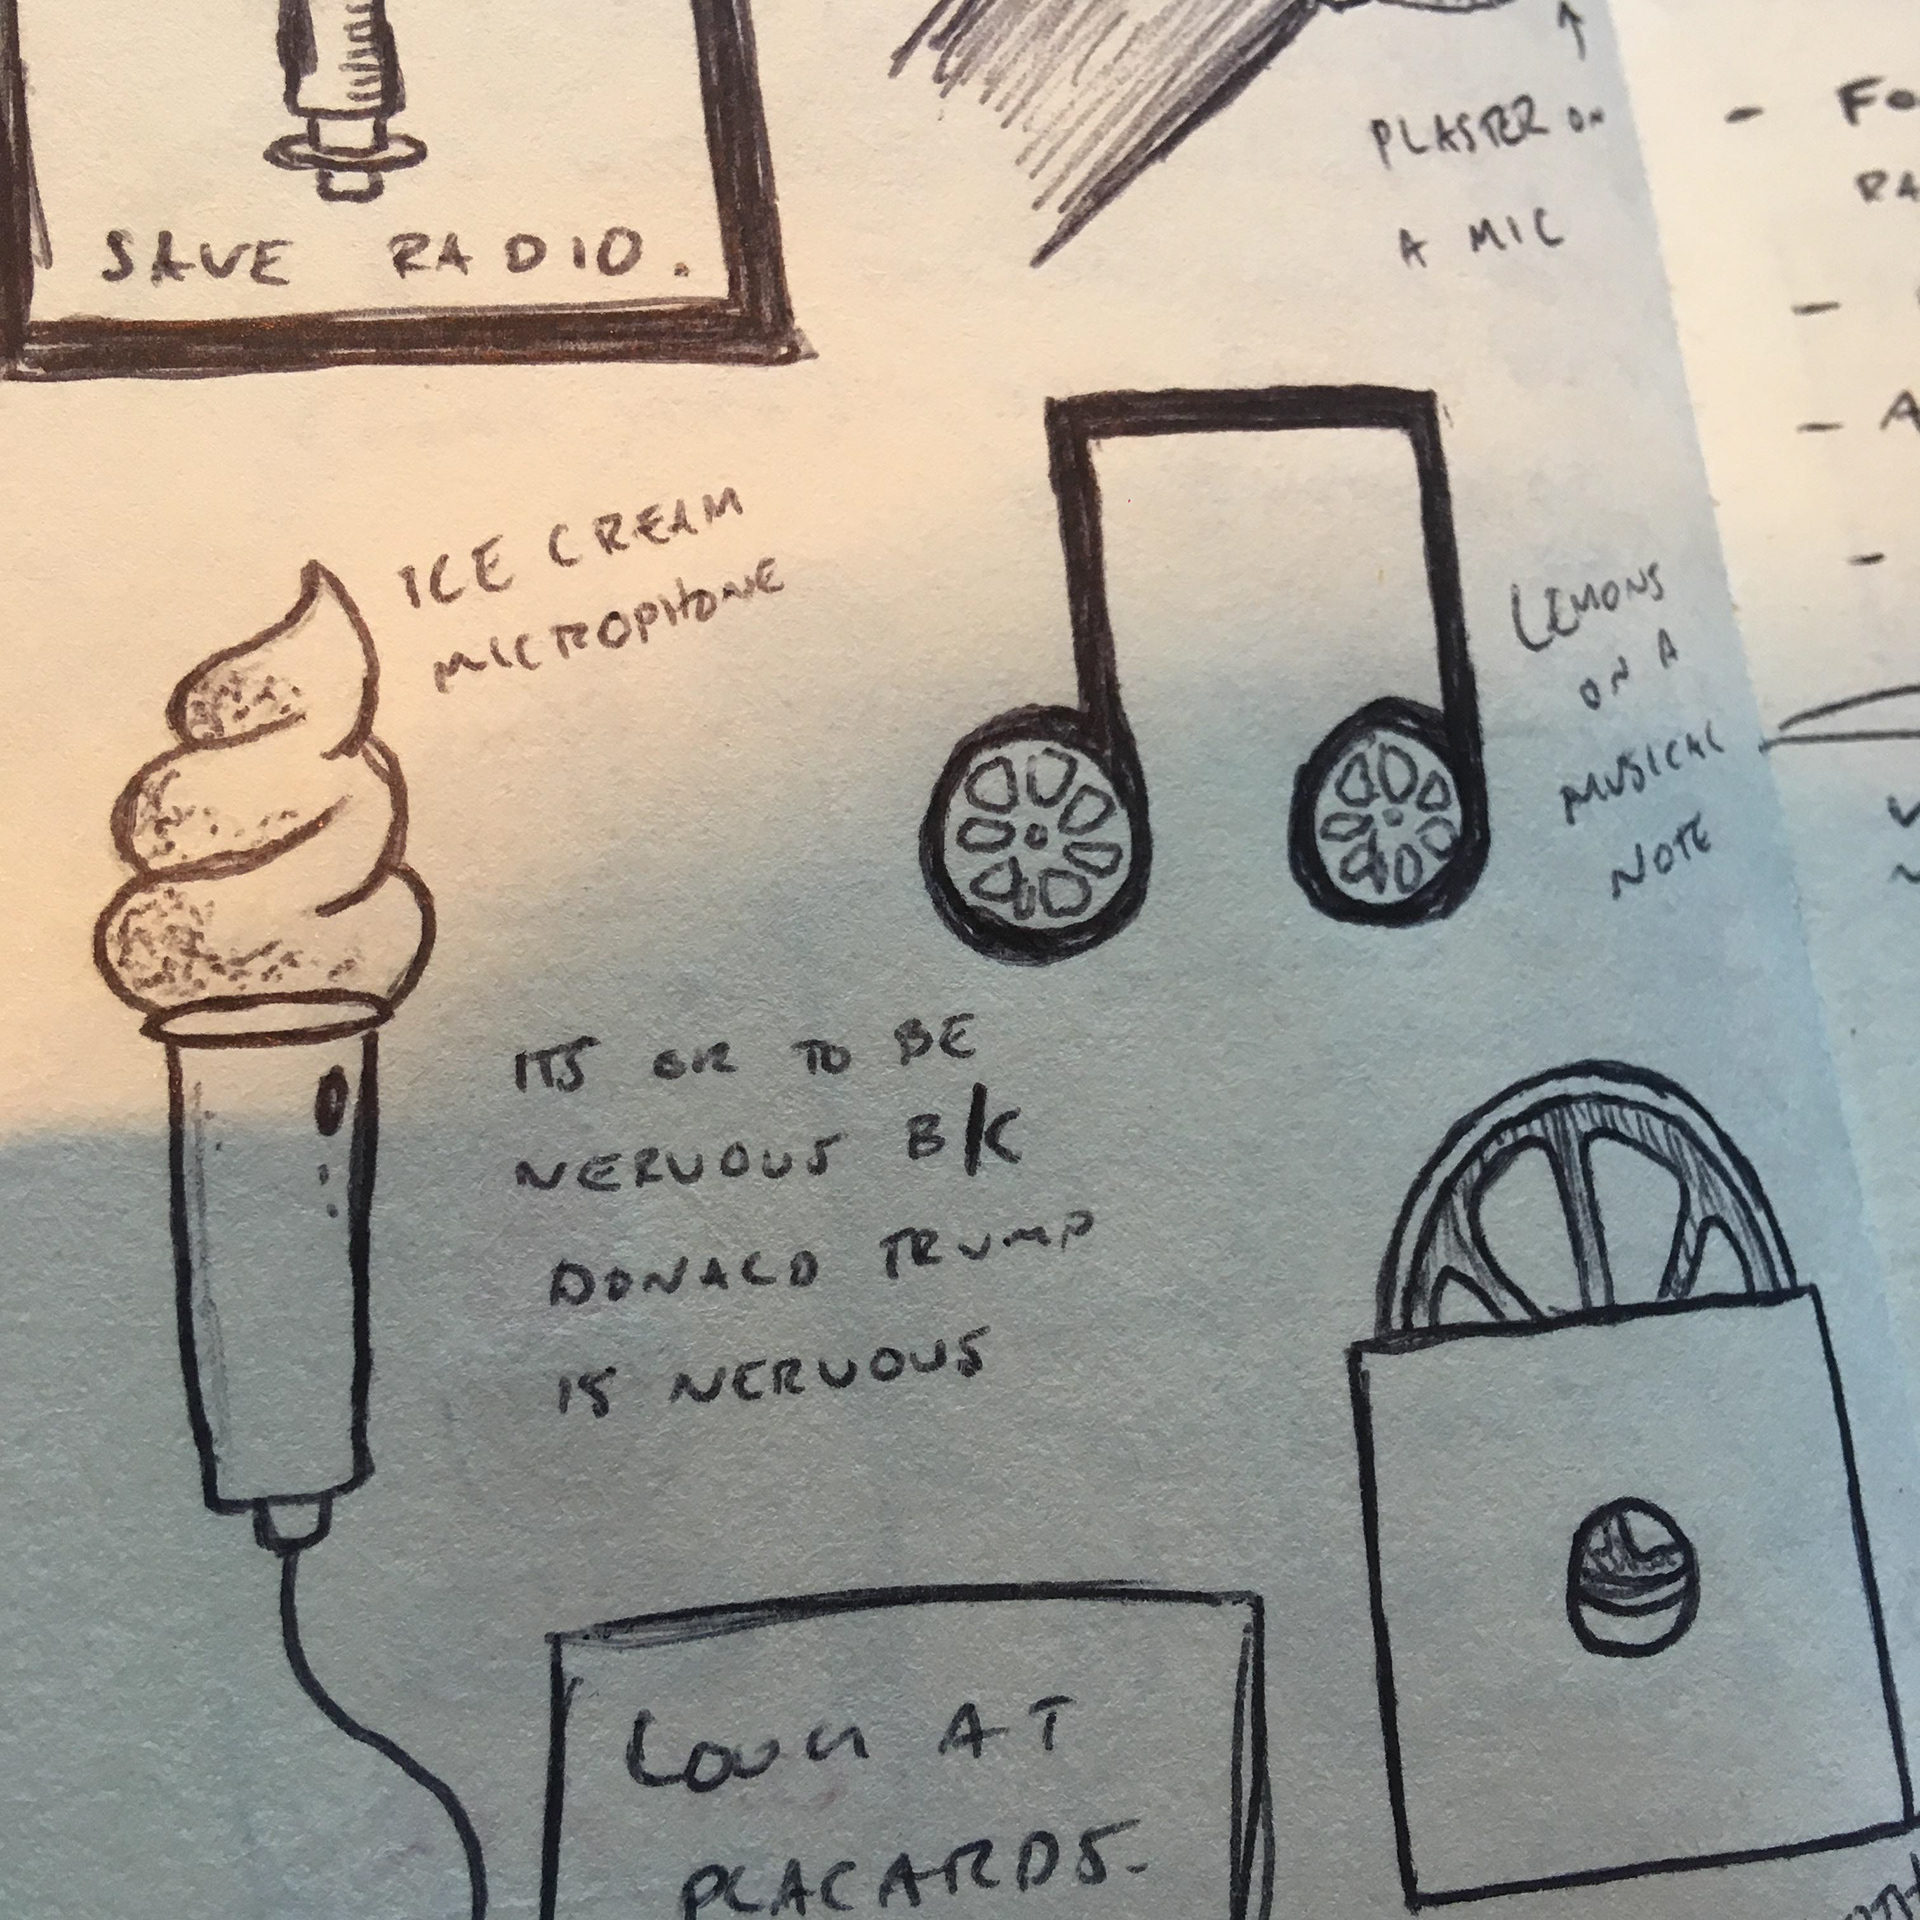 SAVE RADIO.
PLASTER ON
A MIC
ICE CREAM
MICROPHONE
LEMONS
ON A
MUSICAL
NOTE
ITS OK TO BE
NERVOUS B/C
DONALD TRUMP
IS NERVOUS
LOOK AT
PLACARDS-